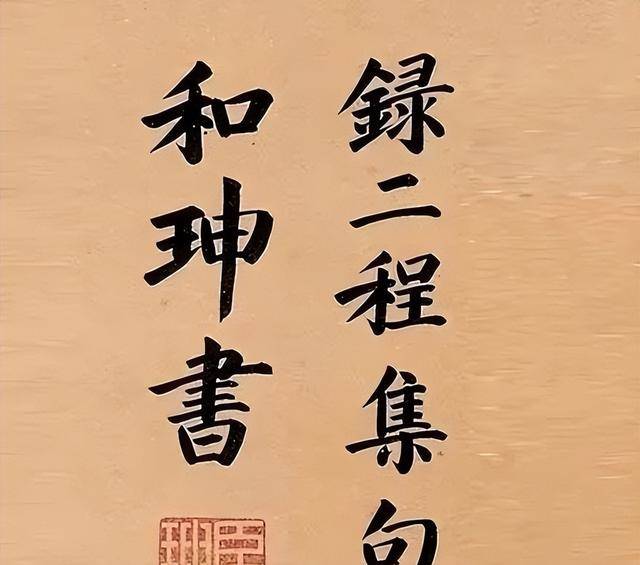 録二程集句
和珅書